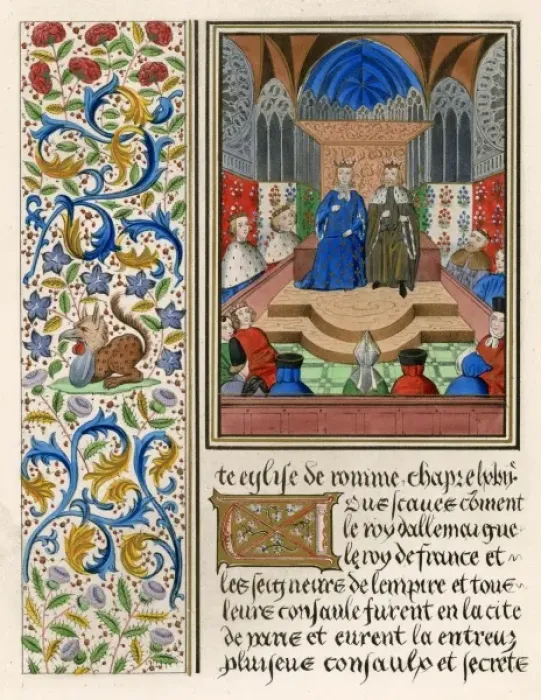 te eglise de romme. chapr̄e lxbiijᵉ.
Ous scaues cōment
le roy dallemaigne
le roy de france et
les seigneurs de lempire et tous
leurs consaulx furent en la cite
de et eurent la entreulx
pluiseus consaulx et secrets